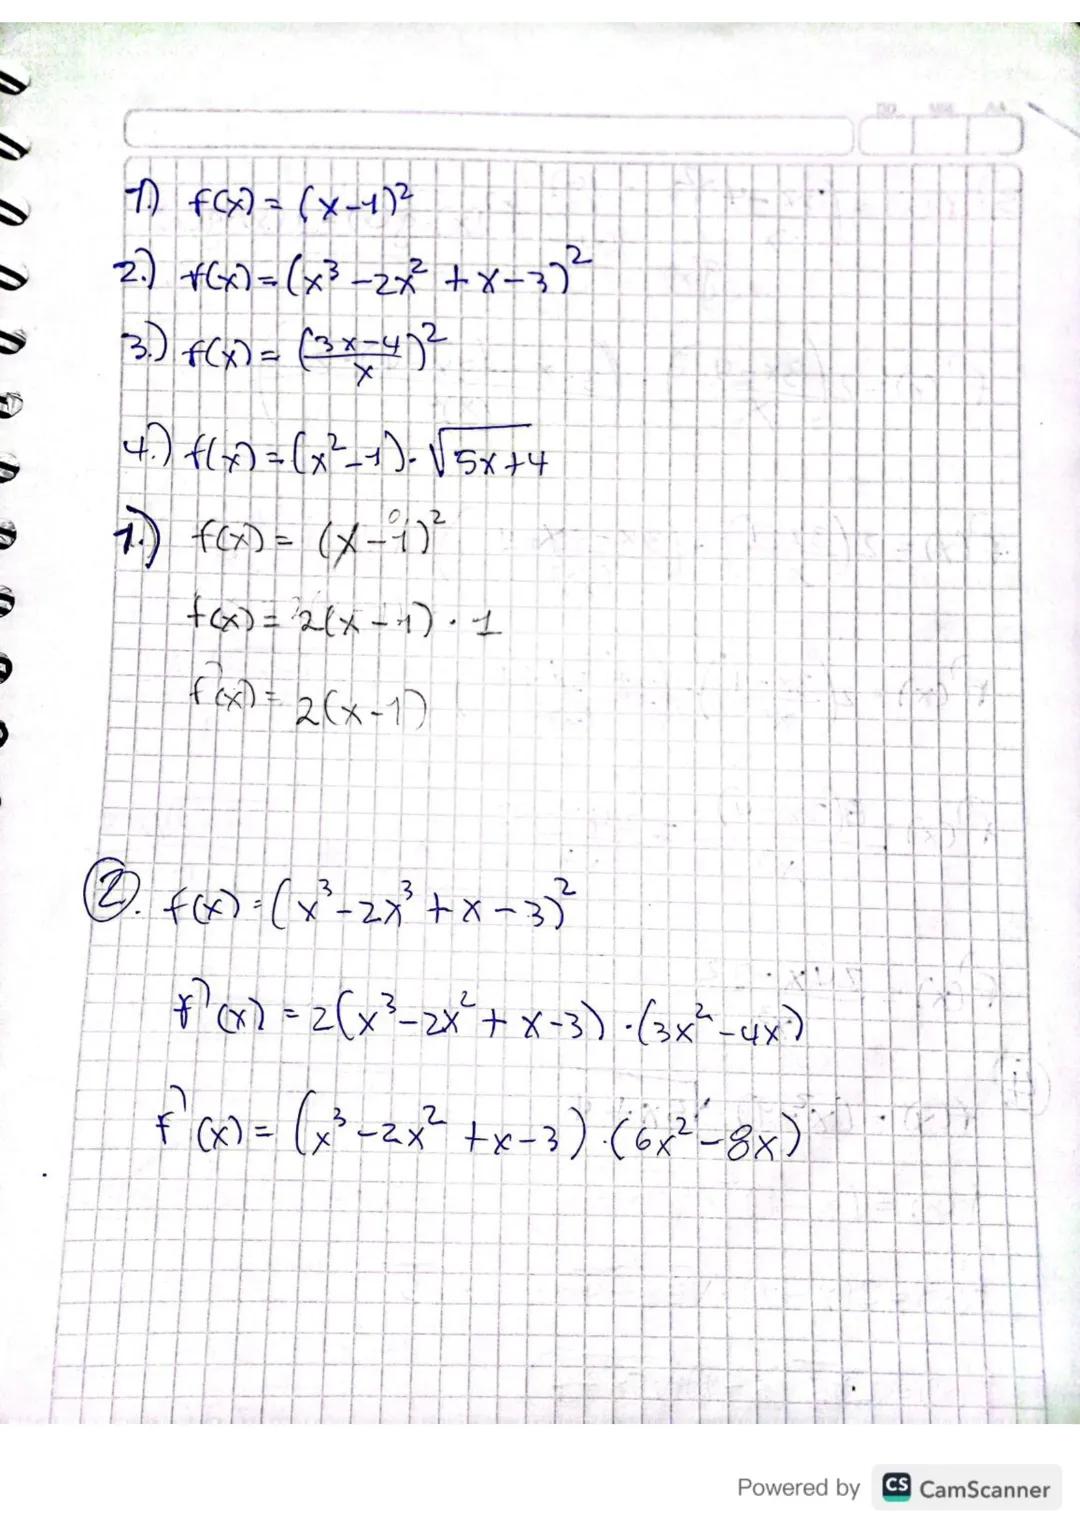 1.) f(x) = (x-1)²
2.) f(x) = (x³ -2x² + x-3)²
3.) f(x) = (3x-4/x)²
4.) f(x) = (x²-1)·√5x+4
1.) f(x) = (x-1)²
f(x) = 2(x-1) · 1
f'(x) = 2(x-1)
2. f(x) = (x³-2x³ + x-3)²
f'(x) = 2(x³-2x² + x-3) · (3x²-4x)
f'(x) = (x³-2x² +x-3) · (6x²-8x)
Powered by CS CamScanner